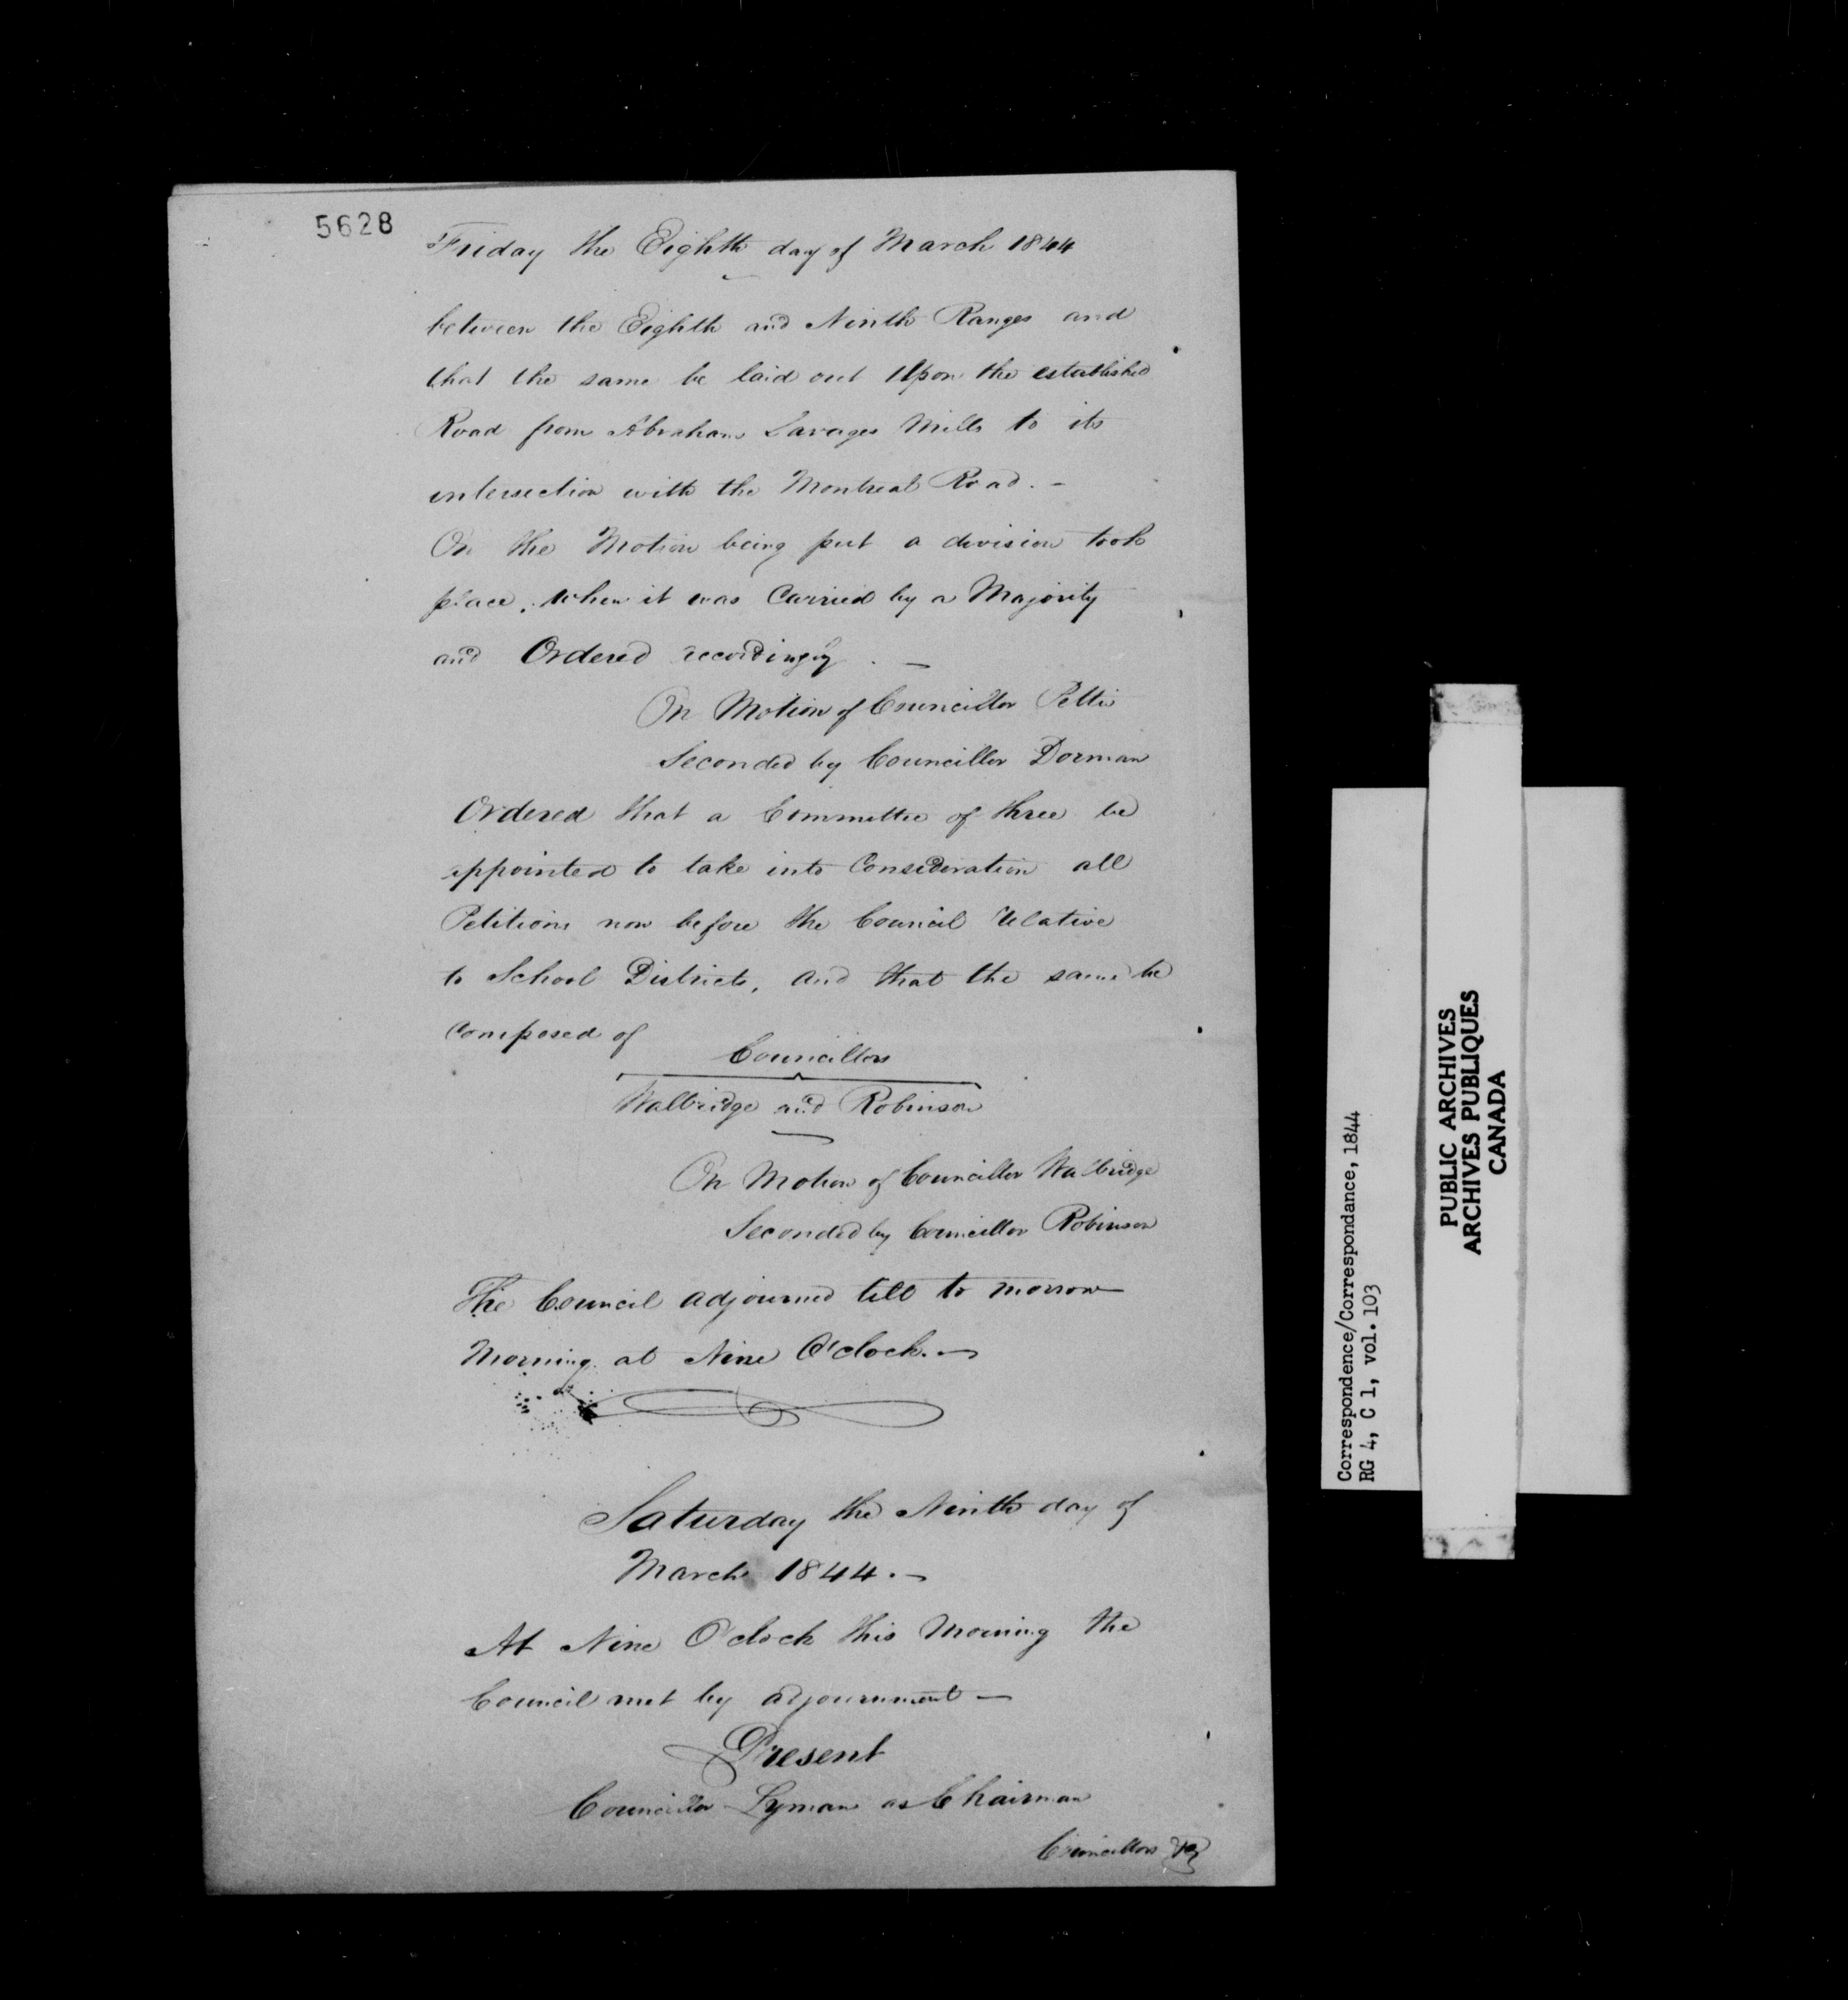 5628
Friday the Eighth day of March 1844
between the Eighth and Ninth Ranges and
that the same be laid out Upon the established
Road from Abraham Savages Mills to its
intersection with the Montreal Road. -
On the Motion being put a division took
place, when it was Carried by a Majority
and Ordered accordingly. -
On Motion of Councillor Pettis
Seconded by Councillor Dorman
Ordered that a Committee of three be
appointed to take into Consideration all
Petitions now before the Council relative
to School Districts, and that the same be
Composed of
Councillors
Walbridge and Robinson
On Motion of Councillor Walbridge
Seconded by Councillor Robinson
The Council adjourned till to morrow
Morning at Nine O'clock. -
Saturday the Ninth day of
March 1844. -
At Nine O'clock this Morning the
Council met by adjournment -
Present
Councillor Lyman as Chairman
Councillors
Correspondence/Correspondance, 1844
RG 4, C 1, vol. 103
PUBLIC ARCHIVES
ARCHIVES PUBLIQUES
CANADA